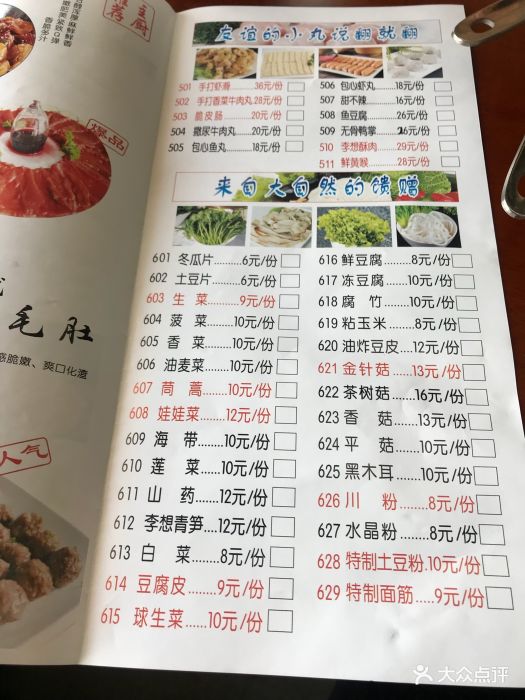 推荐
主厨
麻鲜鲜香
香脆多汁
爆品
毛肚
感脆嫩、爽口化渣
人气
友谊的小丸说翻就翻
501 手打虾滑.......36元/份
502 手打香菜牛肉丸28元/份
503 脆皮肠.........20元/份
504 撒尿牛肉丸...20元/份
505 包心鱼丸.......20元/份
506 包心虾丸.......18元/份
507 甜不辣..........16元/份
508 鱼豆腐..........26元/份
509 无骨鸭掌.......26元/份
510 李想酥肉.......29元/份
511 鲜黄喉..........28元/份
来自大自然的馈赠
601 冬瓜片........6元/份
602 土豆片........6元/份
603 生 菜........9元/份
604 菠 菜......10元/份
605 香 菜......10元/份
606 油麦菜......10元/份
607 茼 蒿......10元/份
608 娃娃菜......12元/份
609 海 带......10元/份
610 莲 菜......10元/份
611 山 药......12元/份
612 李想青笋...12元/份
613 白 菜........8元/份
614 豆腐皮........9元/份
615 球生菜......10元/份
616 鲜豆腐........8元/份
617 冻豆腐......10元/份
618 腐 竹......10元/份
619 粘玉米........8元/份
620 油炸豆皮...12元/份
621 金针菇......13元/份
622 茶树菇......16元/份
623 香 菇......13元/份
624 平 菇......10元/份
625 黑木耳......10元/份
626 川 粉........8元/份
627 水晶粉........8元/份
628 特制土豆粉.10元/份
629 特制面筋.....9元/份
大众点评